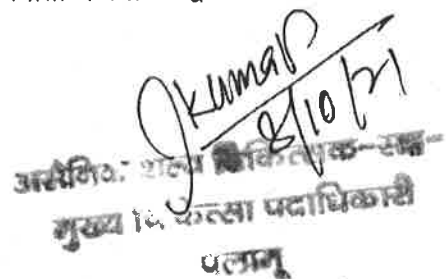 Jkumar
8/10/21
असैनिक शल्य चिकित्सक-सह-
मुख्य चिकित्सा पदाधिकारी
पलामू